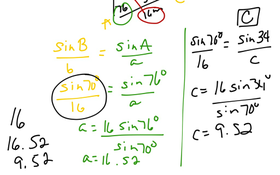 A
76
16m
C
sin B / b = sin A / a
sin 70° / 16 = sin 76° / a
a = 16 sin 76° / sin 70°
a = 16.52
16
16.52
9.52
sin 70° / 16 = sin 34 / c
c = 16 sin 34° / sin 70°
c = 9.52